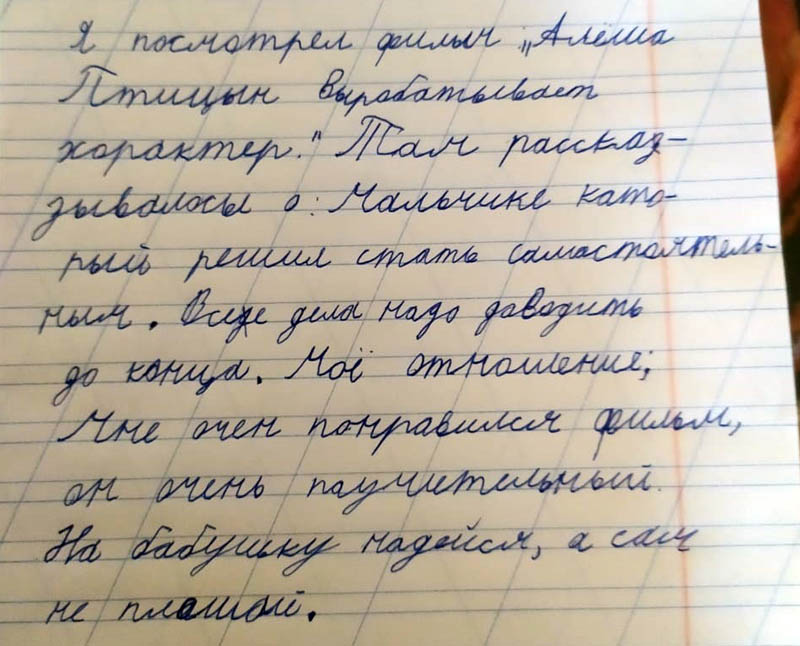 Я посмотрел фильм „Алёша
Птицын вырабатывает
характер." Там расска-
зывалосы о: Мальчике като-
рый решил стать самастоятель-
ным. Все дела надо доводить
до конца. Моё отношение;
Мне очен понравился фильм,
он очень паучительный.
На бабушку надейся, а сам
не плошай.